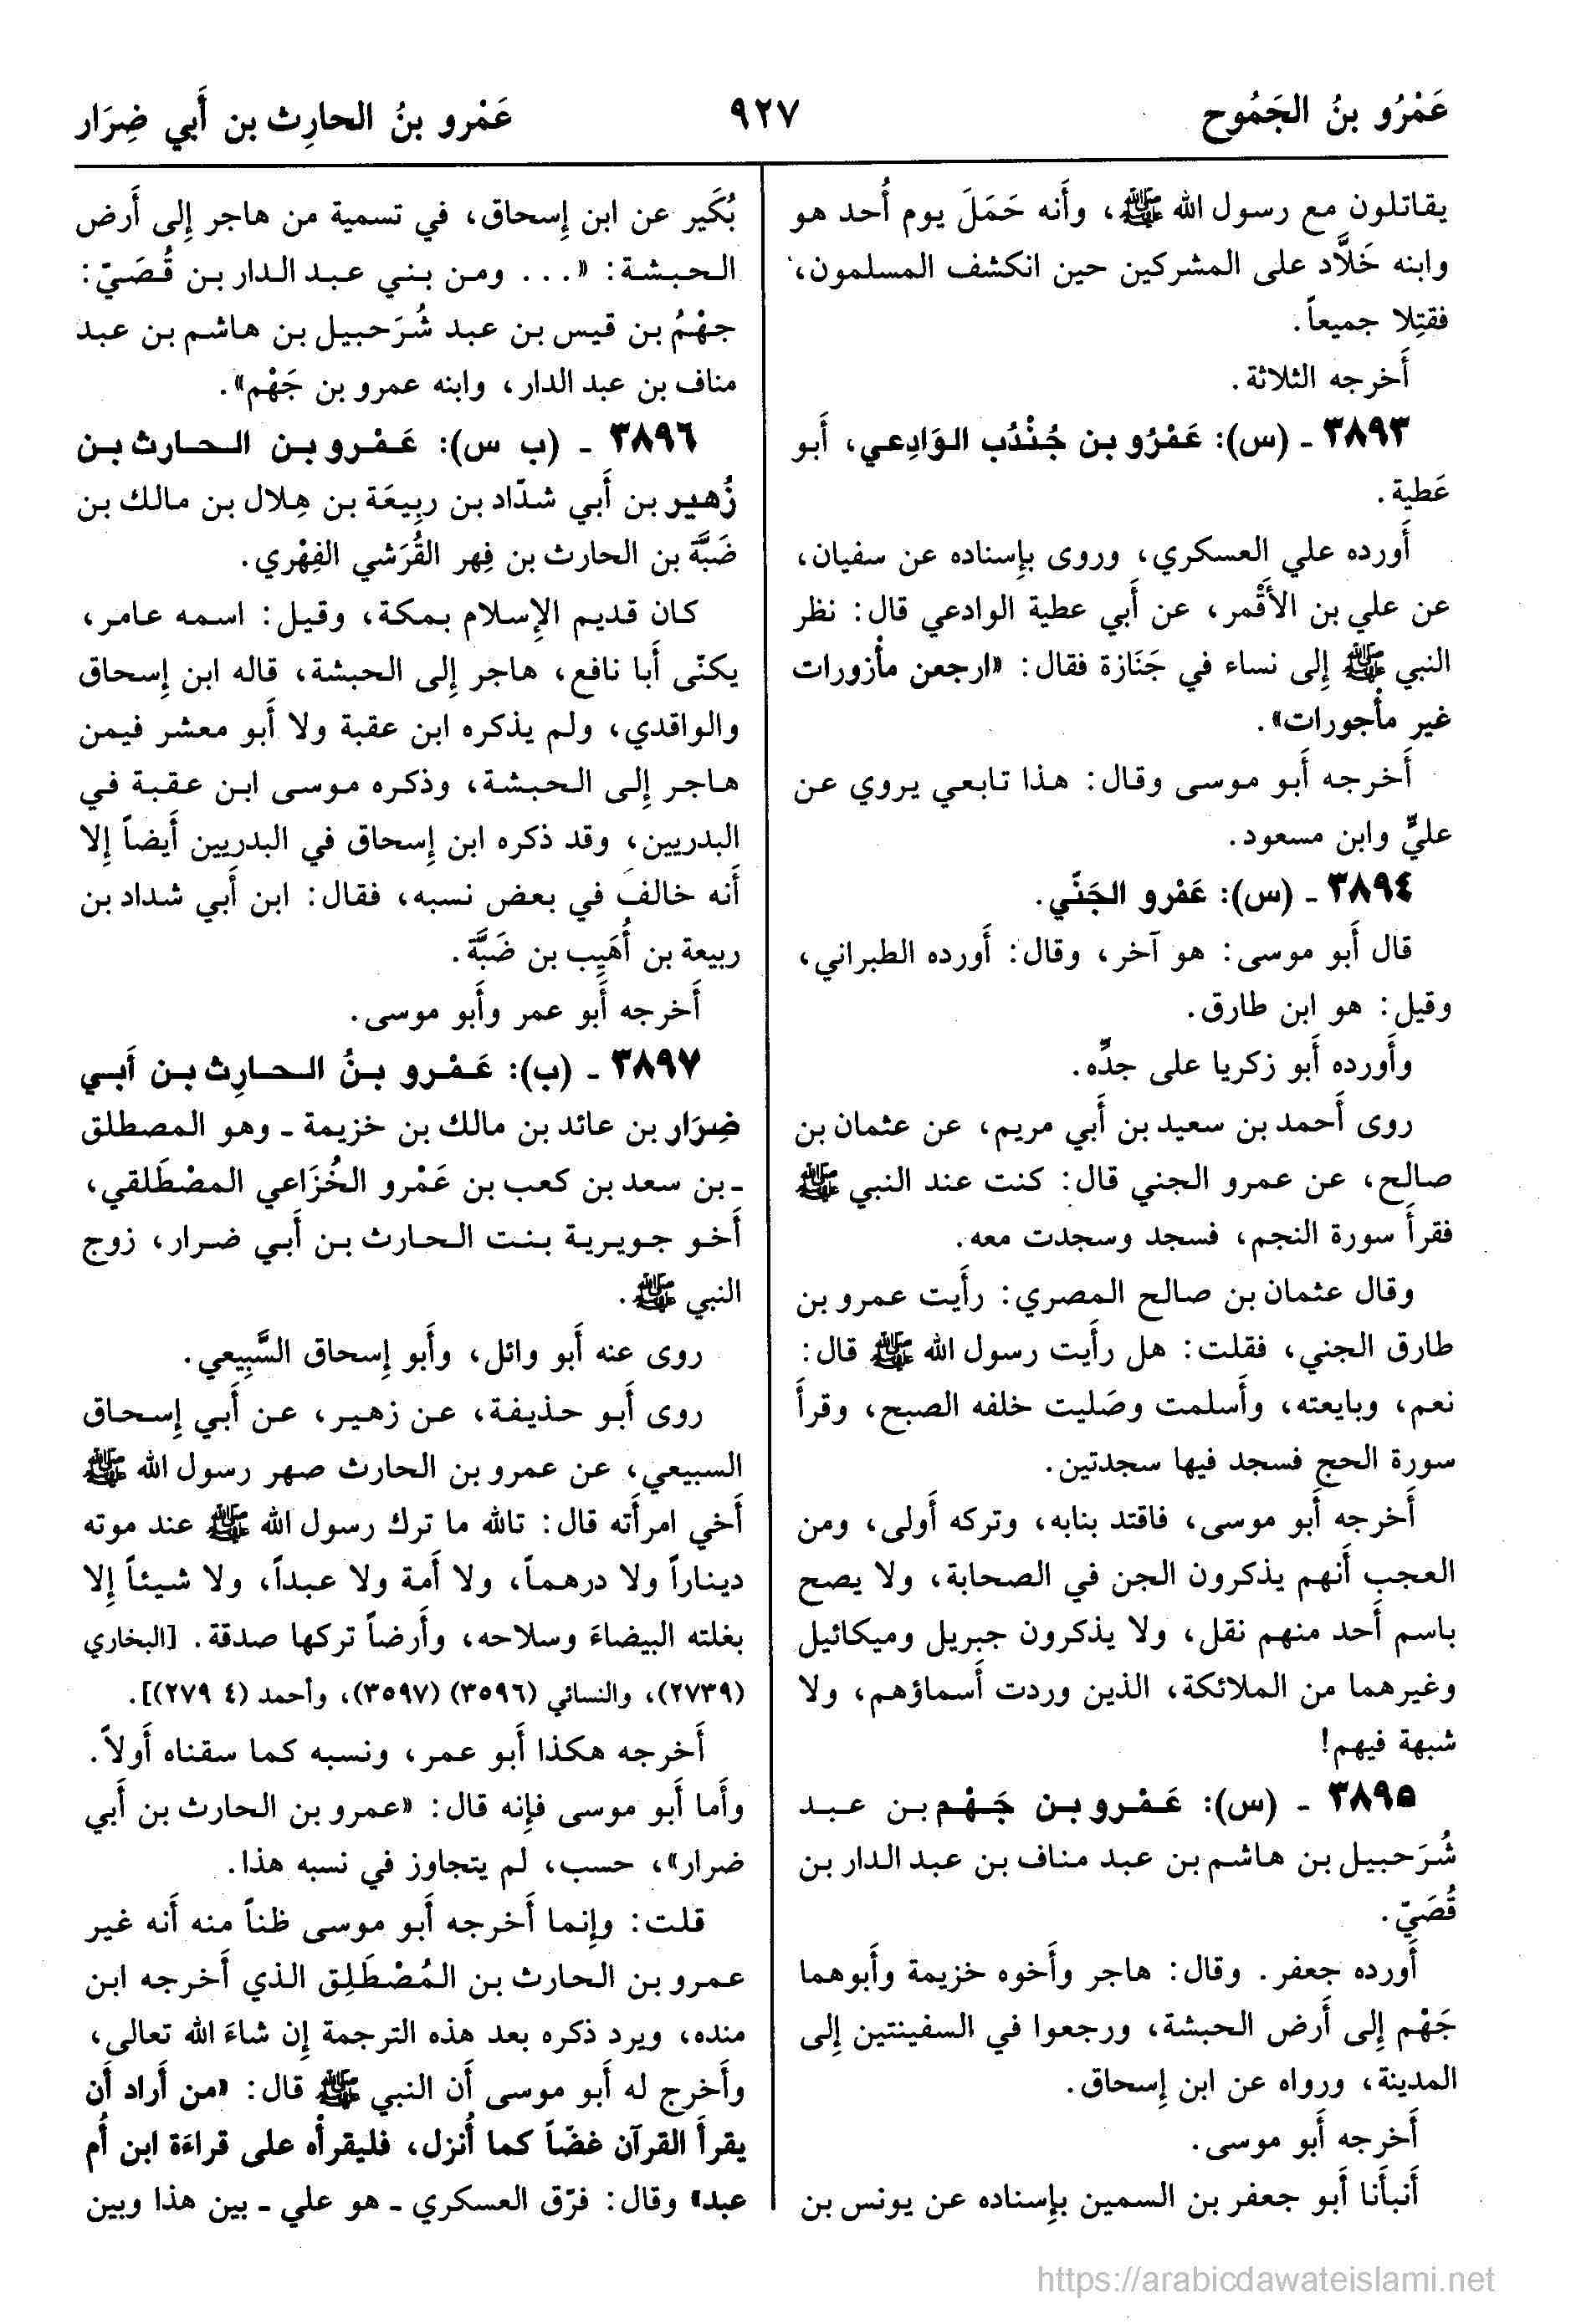 عَمْرُو بنُ الجَمُوح
٩٢٧
عَمْرو بنُ الحارِث بن أَبي ضِرَار
يقاتلون مع رسول الله ﷺ، وأَنه حَمَلَ يوم أُحد هو
وابنه خَلَّاد على المشركين حين انكشف المسلمون،
فقتِلا جميعاً.
أَخرجه الثلاثة.
٣٨٩٣ ـ (س): عَمْرُو بن جُنْدُب الوَادِعي، أَبو
عَطية.
أَورده علي العسكري، وروى بإِسناده عن سفيان،
عن علي بن الأَقْمر، عن أَبي عطية الوادعي قال: نظر
النبي ﷺ إِلى نساء في جَنَازة فقال: «ارجعن مأْزورات
غير مأْجورات».
أَخرجه أَبو موسى وقال: هذا تابعي يروي عن
عليٍّ وابن مسعود.
٣٨٩٤ ـ (س): عَمْرو الجَنّي.
قال أَبو موسى: هو آخر، وقال: أَورده الطبراني،
وقيل: هو ابن طارق.
وأَورده أَبو زكريا على جدِّه.
روى أَحمد بن سعيد بن أَبي مريم، عن عثمان بن
صالح، عن عمرو الجني قال: كنت عند النبي ﷺ
فقرأَ سورة النجم، فسجد وسجدت معه.
وقال عثمان بن صالح المصري: رأَيت عمرو بن
طارق الجني، فقلت: هل رأَيت رسول الله ﷺ قال:
نعم، وبايعته، وأَسلمت وصَليت خلفه الصبح، وقرأَ
سورة الحج فسجد فيها سجدتين.
أَخرجه أَبو موسى، فاقتد بنابه، وتركه أَولى، ومن
العجب أَنهم يذكرون الجن في الصحابة، ولا يصح
باسم أَحد منهم نقل، ولا يذكرون جبريل وميكائيل
وغيرهما من الملائكة، الذين وردت أَسماؤهم، ولا
شبهة فيهم!
٣٨٩٥ ـ (س): عَمْرو بن جَهْم بن عبد
شُرَحبيل بن هاشم بن عبد مناف بن عبد الدار بن
قُصَيّ.
أَورده جعفر. وقال: هاجر وأَخوه خزيمة وأَبوهما
جَهْم إِلى أَرض الحبشة، ورجعوا في السفينتين إِلى
المدينة، ورواه عن ابن إِسحاق.
أَخرجه أَبو موسى.
أَنبأَنا أَبو جعفر بن السمين بإِسناده عن يونس بن
بُكَير عن ابن إِسحاق، في تسمية من هاجر إِلى أَرض
الحبشة: «... ومن بني عبد الدار بن قُصَيّ:
جهْمُ بن قيس بن عبد شُرَحبيل بن هاشم بن عبد
مناف بن عبد الدار، وابنه عمرو بن جَهْم».
٣٨٩٦ ـ (ب س): عَمْرو بن الحارث بن
زُهير بن أَبي شدّاد بن ربِيعَة بن هِلال بن مالك بن
ضَبَّة بن الحارث بن فِهر القُرَشي الفِهْري.
كان قديم الإِسلام بمكة، وقيل: اسمه عامر،
يكنّى أَبا نافع، هاجر إِلى الحبشة، قاله ابن إِسحاق
والواقدي، ولم يذكره ابن عقبة ولا أَبو معشر فيمن
هاجر إِلى الحبشة، وذكره موسى ابن عقبة في
البدريين، وقد ذكره ابن إِسحاق في البدريين أَيضاً إِلا
أَنه خالف في بعض نسبه، فقال: ابن أَبي شداد بن
ربيعة بن أُهَيب بن ضَبَّة.
أَخرجه أَبو عمر وأَبو موسى.
٣٨٩٧ ـ (ب): عَمْرو بنُ الحارِث بن أَبي
ضِرَار بن عائد بن مالك بن خزيمة ـ وهو المصطلق
ـ بن سعد بن كعب بن عَمْرو الخُزَاعي المصْطَلقي،
أَخو جويرية بنت الحارث بن أَبي ضرار، زوج
النبي ﷺ.
روى عنه أَبو وائل، وأَبو إِسحاق السَّبِيعي.
روى أَبو حذيفة، عن زهير، عن أَبي إِسحاق
السبيعي، عن عمرو بن الحارث صهر رسول الله ﷺ
أَخي امرأَته قال: تالله ما ترك رسول الله ﷺ عند موته
ديناراً ولا درهماً، ولا أَمة ولا عبداً، ولا شيئاً إِلا
بغلته البيضاءَ وسلاحه، وأَرضاً تركها صدقة. [البخاري
(٢٧٣٩)، والنسائي (٣٥٩٦) (٣٥٩٧)، وأحمد (٤ ٢٧٩)].
أَخرجه هكذا أَبو عمر، ونسبه كما سقناه أَولاً.
وأَما أَبو موسى فإِنه قال: «عمرو بن الحارث بن أَبي
ضرار»، حسب، لم يتجاوز في نسبه هذا.
قلت: وإِنما أَخرجه أَبو موسى ظناً منه أَنه غير
عمرو بن الحارث بن المُصْطَلِق الذي أَخرجه ابن
منده، ويرد ذكره بعد هذه الترجمة إِن شاءَ الله تعالى،
وأَخرج له أَبو موسى أَن النبي ﷺ قال: «من أَراد أَن
يقرأَ القرآن غضّاً كما أُنزل، فليقرأْه على قراءَة ابن أُم
عبد» وقال: فرّق العسكري ـ هو علي ـ بين هذا وبين
https://arabicdawateislami.net